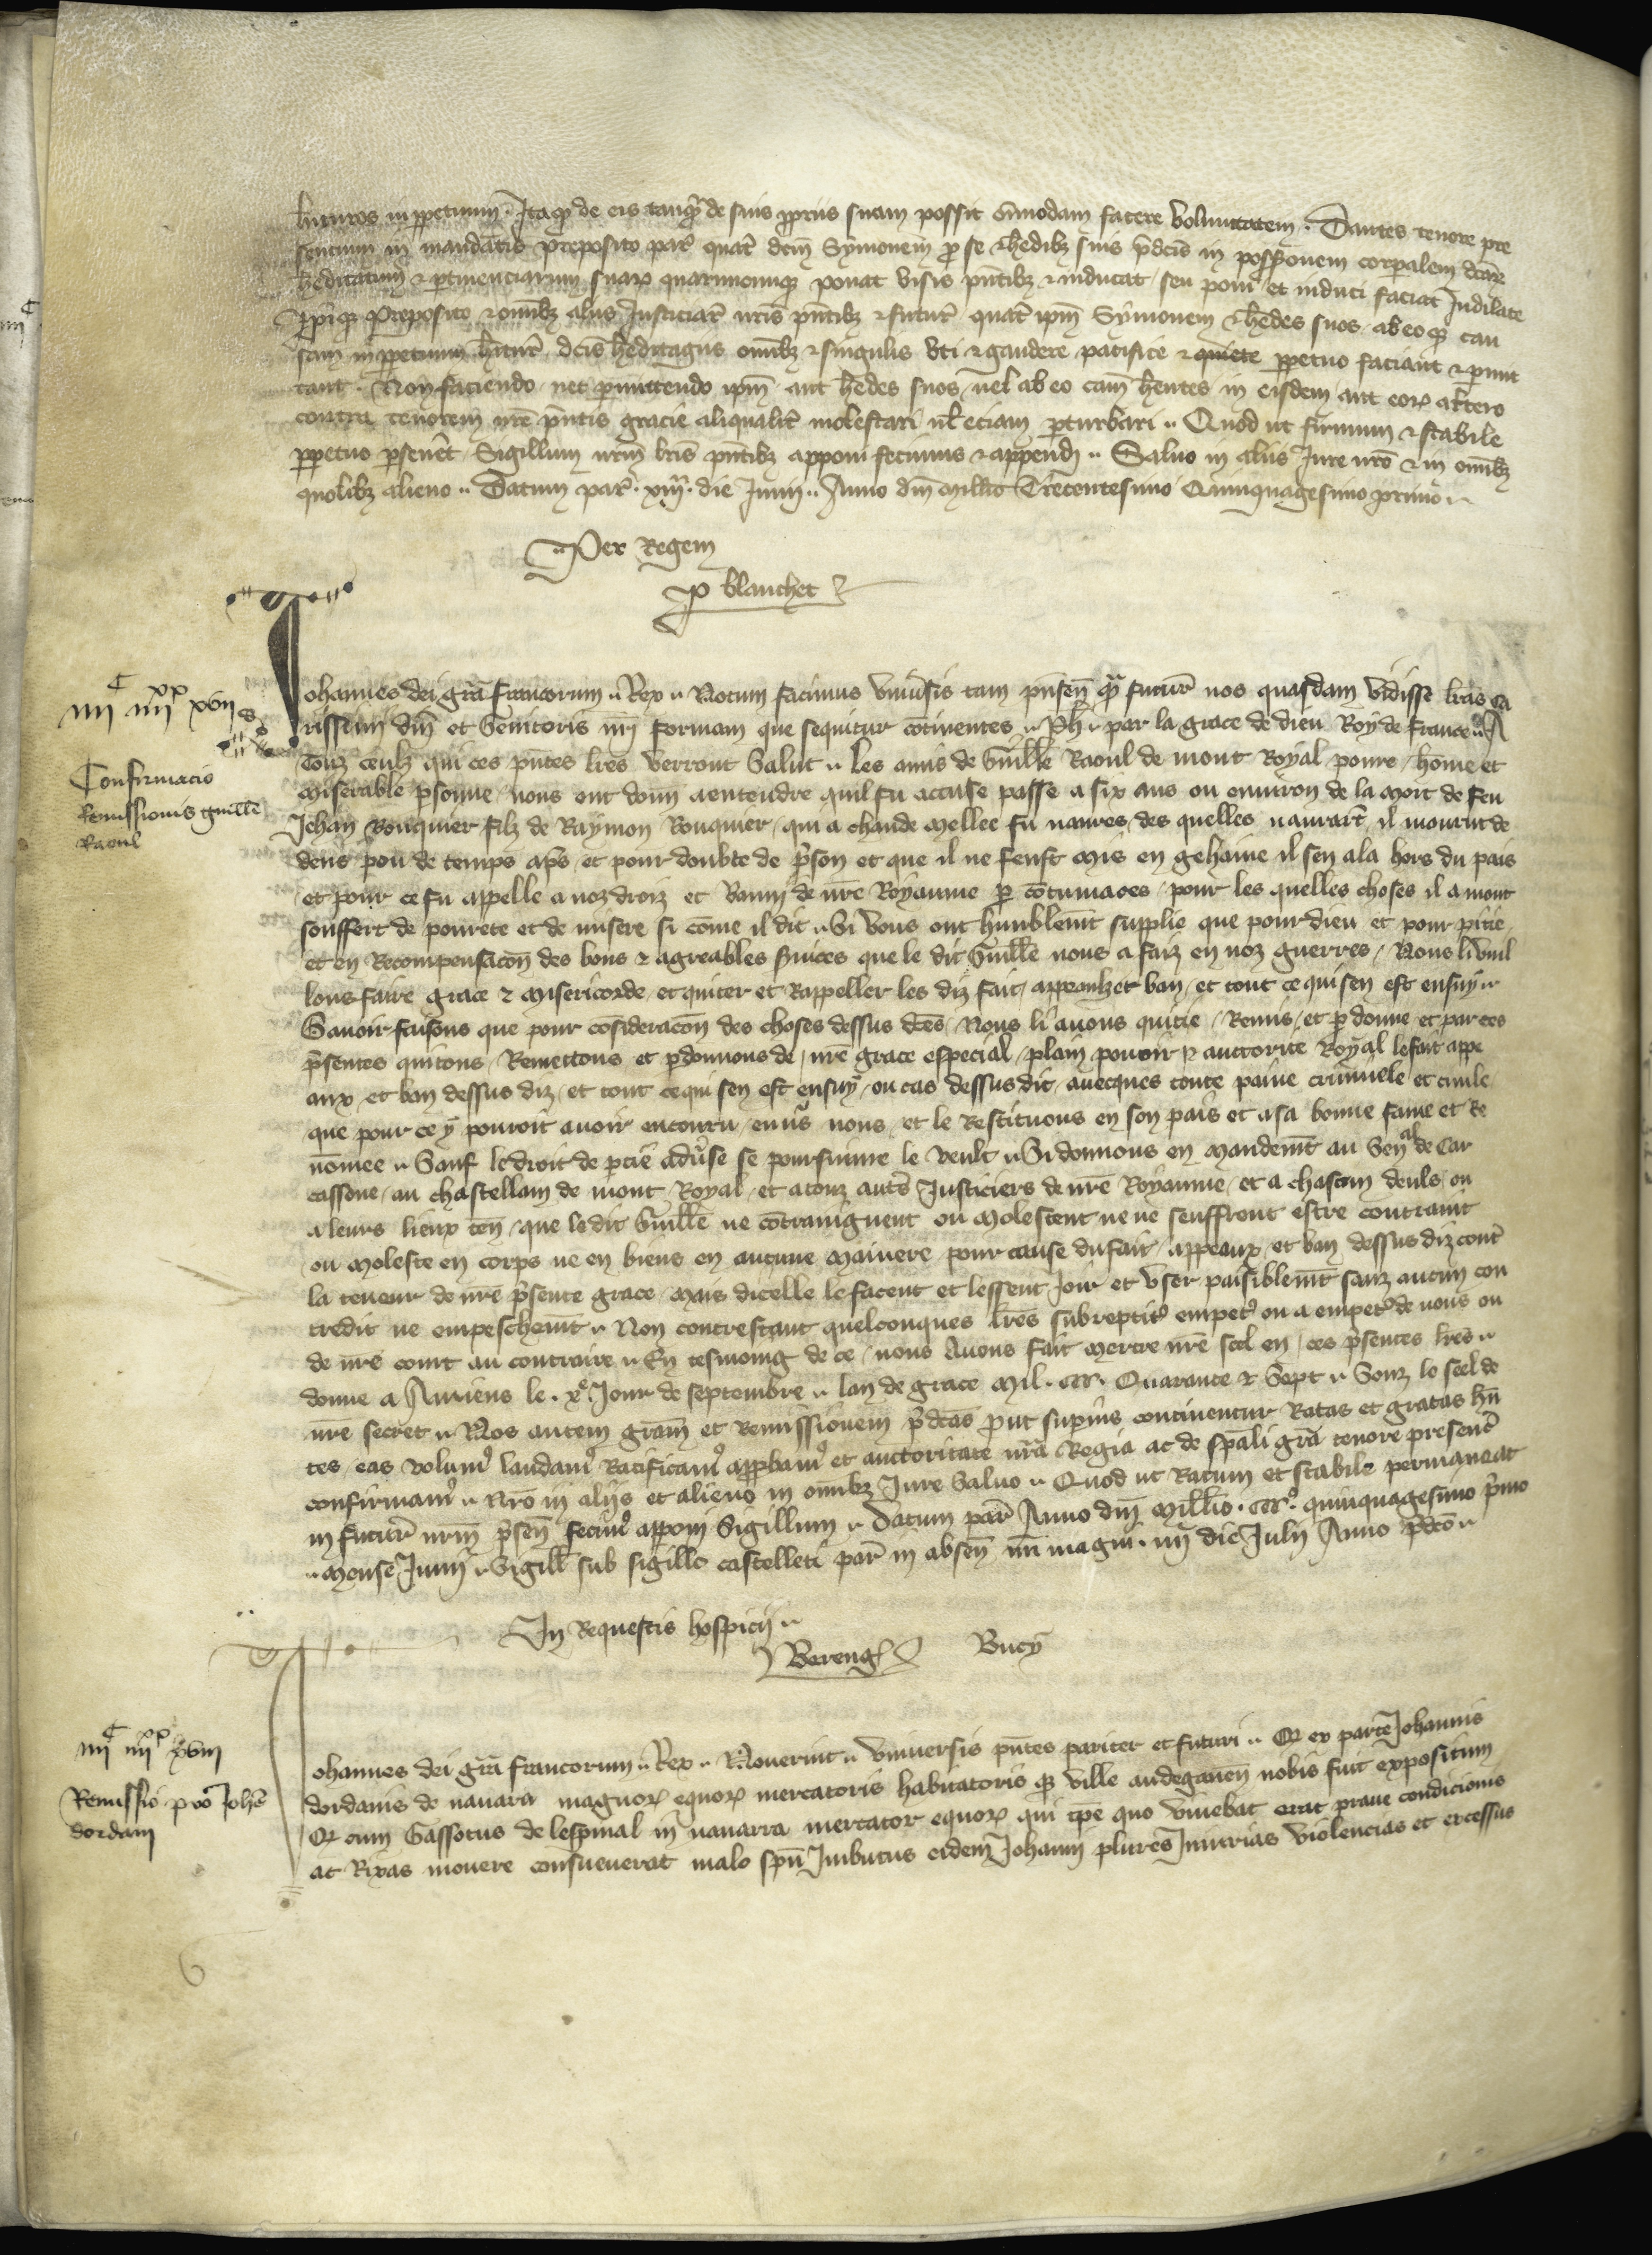 futuros in ppetuum. Itaqz de eis tanqz de suis ppriis suam possit omnodam facere voluntatem. Dantes tenore pre
sencium in mandatis preposito par quatr dcm Symonem pro se & hedibz suis pdcis in possessionem corpalem dcar
heditatum & ptinenciarum suar quarumcumqz ponat visis pntibz & inducat seu poni et induci faciat Indilate
pfatoqz preposito & omibz aliis Justiciar nris pntibz & futur quatr ipm Symonem & hedes suos ab eoqz cau
sam in ppetuum hitur dcis heditagiis omibz & singulis uti & gaudere pacifice & quiete ppetuo faciant & pmit
tant. Non faciendo nec pmittendo ipm aut hedes suos uel ab eo cam hentes in eisdem aut eor altero
contra tenorem nre pntis gracie aliqualitr molestari ul eciam pturbari. Quod ut firmum & stabile
ppetuo pseuet Sigillum nrm lris pntibz apponi fecimus & appendi. Saluo in aliis Jure nro & in omibz
quolibz alieno. Datum par xiiij die Junii. Anno dm Millo Trecentesimo Quinquagesimo primo
Per Regem
P blanchet
iiijC iiijxx xvij
Confirmacio
Remissionis guille
Raoul
Johannes dei gra francorum Rex. Notum facimus Uniusis tam pnsen qz futur nos quasdam vidisse lras ca
rissimi dni et Genitoris nri formam que sequitur continentes. Ph par la grace de dieu Roy de France A
touz ceulz qui ces pntes lres verront Salut. Les amis de Guille Raoul de mont Royal poure home et
miserable psonne nous ont donn a entendre quil fu accuse passe a six ans ou enuiron de la mort de feu
Jehan Rouquier filz de Raymon Rouquier qui a chaude mellee fu naures des quelles naurar il mourut de
dens pou de temps aps et pour doubte de pson et que il ne feust mis en gehaine il sen ala hors du pais
et pour ce fu appelle a noz droiz et Banni de nre Royaume p contumaces pour les quelles choses il a mout
souffert de pourete et de misere si come il dit. Si nous ont humblemt supplie que pour dieu et pour pitie
et en Recompensacon des bons & agreables suices que le dit Guille nous a faiz en noz guerres Nous li vuil
lons faire grace & misericorde et quiter et Rappeller les diz fait appeaulz et ban et tout ce qui sen est ensuy
Sauoir faisons que pour consideracon des choses dessus dces Nous li auons quicte Remis et pdonne et par ces
psentes quitons Remettons et pdonnons de nre grace especial plain pouoir & auctorite Royal le fait appe
aux et ban dessus diz et tout ce qui sen est ensuy ou cas dessus dit auecques toute paine criminele et ciuile
que pour ce y pouroit auoir encouru enus nous et le Restituons en son pais et a sa bonne fame et Re
nomee. Sauf le droit de ptie aduse se poursuiure le veult. Si donnons en mandemt au Senal de Car
cassone au chastellain de mont Royal et a touz autes Justiciers de nre Royaume et a chascun deuls ou
a leurs lieux ten que le dit Guille ne contraignent ou molestent ne ne seuffrent estre contraint
ou moleste en corps ne en biens en aucune maniere pour cause du fait appeaux et ban dessus diz contr
la teneur de nre psente grace mais dicelle le facent et lessent Joir et user paisiblemt sanz aucun con
tredit ne empeschemt. Non contrestant quelconques lres subreptis empet ou a empetr de nous ou
de nre court au contraire. En tesmoing de ce nous Auons fait mettre nre seel en ces psentes lres
donne a Amiens le xe Jour de septembre lan de grace mil CCC Quarante & Sept. Souz le seel de
nre secret. Nos autem gram et Remissionem pdcas put supius continentur Ratas et gratas hn
tes eas volum laudam Ratificam appbam et auctoritate nra Regia ac de spali gra tenore presenc
confirmam. Nro in aliis et alieno in omibz Jure saluo. Quod ut Ratum et stabile permaneat
in futur nrm psen fecim apponi Sigillum. Datum par Anno dm Millio CCCo quinquagesimo pmo
Mense Junii. Sigill sub sigillo castelleti par in absen nri magni iiij die Julii Anno pdco
In Requestis hospicii
Bereng Bucy
iiijC iiijxx xviij
Remissio pro Johe
dordani
Johannes dei gra francorum Rex. Nouerint Uniuersis pntes pariter et futuri. Qz ex parte Johannis
dordanis de nauara magnor equor mercatoris habitatoris qz ville andegauen nobis fuit expositum
Qz cum Gassotus de lespinal in nauarra mercator equor qui tpe quo viuebat erat praue condicionis
ac Rixas mouere consueuerat malo spu Imbutus eidem Johanni plures Iniurias violencias et excessus